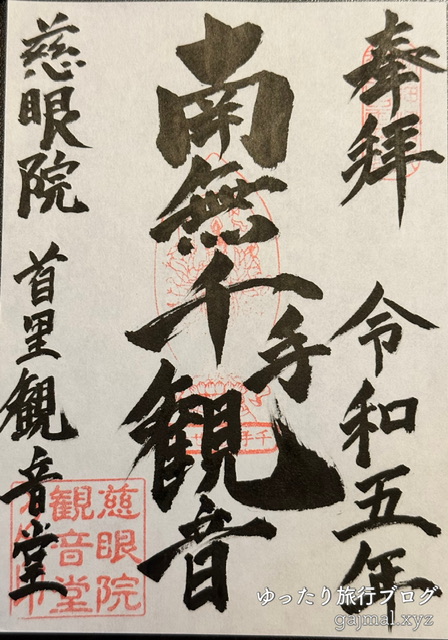 奉拝
令和五年
南無千手観音
慈眼院
首里観音堂
慈眼院
観音堂
ゆったり旅行ブログ
gajmal.xyz